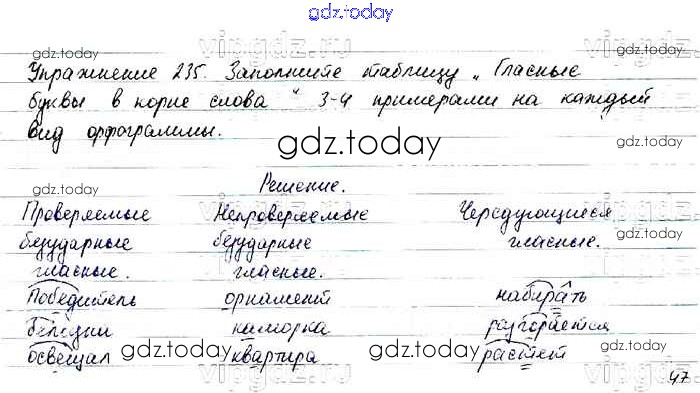 gdz.today
gdz.today vipgdz.ru gdz.today
Упражнение 235. Заполните таблицу „Гласные
буквы в корне слова“ 3-4 примерами на каждый
вид орфограммы.
gdz.today
gdz.today
Решение.
Проверяемые Непроверяемые Чередующиеся
безударные безударные гласные.
гласные. гласные.
gdz.today
Победитель орнамент набирать
каморка разгорается
освещал квартира растет
gdz.today gdz.today
vipgdz.ru
47